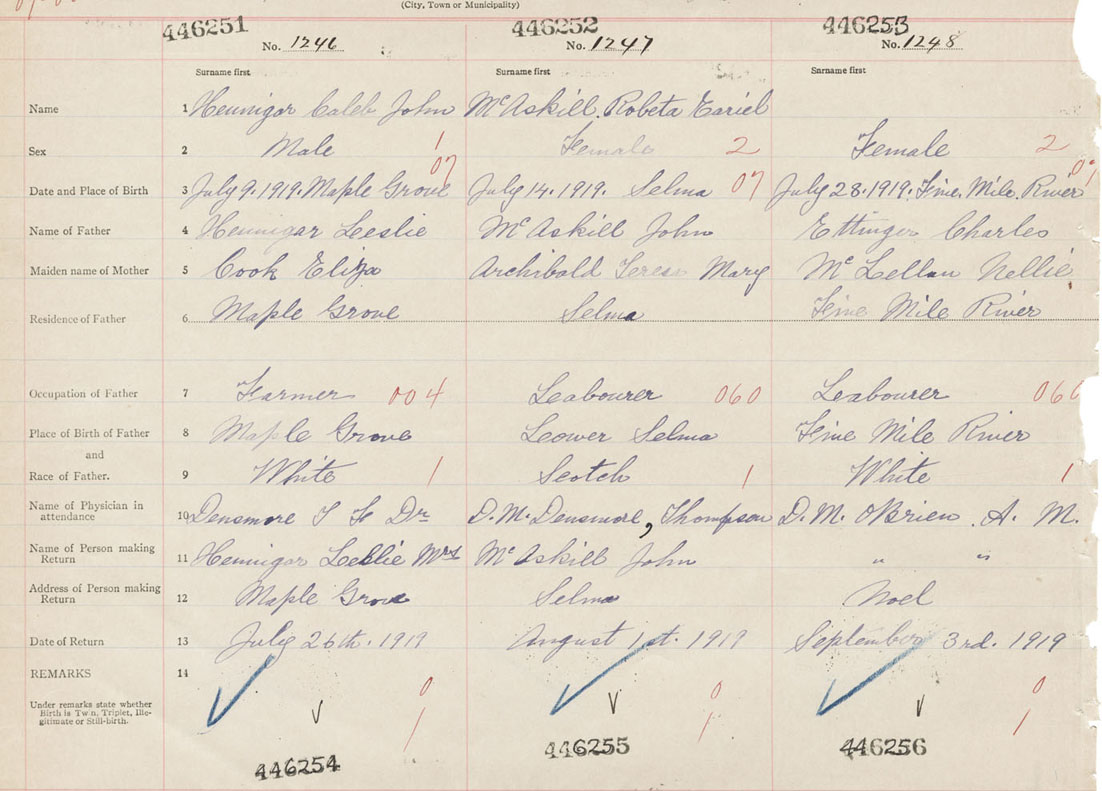 (City, Town or Municipality)
446251 446252 446253
No. 1246 No. 1247 No. 1248
Surname first Surname first Surname first
Name 1 Hennigar Caleb John McAskill Robeta Eariel
Sex 2 Male 1 Female 2 Female 2
07 07
Date and Place of Birth 3 July 9. 1919. Maple Grove July 14. 1919. Selma 07 July 28. 1919. Fine Mile River
Name of Father 4 Hennigar Leslie McAskill John Ettinger Charles
Maiden name of Mother 5 Cook Eliza Archibald Teresa Mary McLellan Nellie
Residence of Father 6 Maple Grove Selma Fine Mile River
Occupation of Father 7 Farmer 004 Leabourer 060 Leabourer 060
Place of Birth of Father 8 Maple Grove Leower Selma Fine Mile River
and
Race of Father. 9 White 1 Scotch 1 White 1
Name of Physician in
attendance 10 Densmore Dr D.M. Densmore, Thompson D.M. OBrien. A. M.
Name of Person making
Return 11 Hennigar Leslie Mrs McAskill John " "
Address of Person making
Return 12 Maple Grove Selma Noel
Date of Return 13 July 26th. 1919 August 1st. 1919 September 3rd. 1919
REMARKS 14
Under remarks state whether
Birth is Twin, Triplet, Ille-
gitimate or Still-birth.
0 0 0
1 1 1
446254 446255 446256